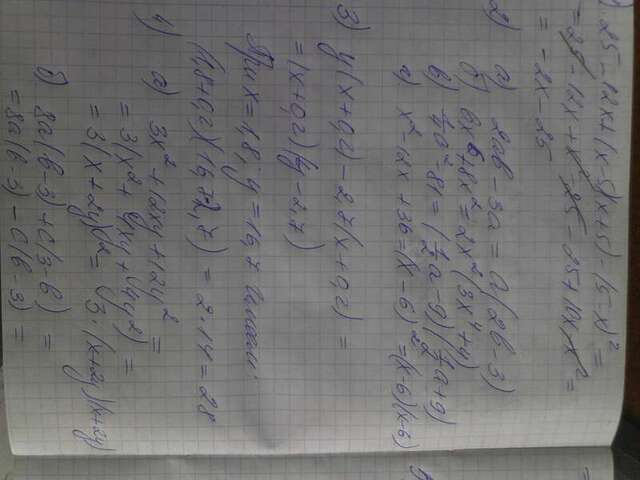 25 - 12x + (x-5)(x+5) - (5-x)² =
= 25 - 12x + x² - 25 - 25 + 10x - x² =
= -2x - 25
2) а) 2ab - 3a = a(2b-3)
б) 6x⁶ + 8x² = 2x²(3x⁴+4)
в) ¼a² - 81 = (½a - 9)(½a + 9)
г) x² - 12x + 36 = (x-6)² = (x-6)(x-6)
3) y(x+0,2) - 2,7(x+0,2) =
= (x+0,2)(y-2,7)
При x = 1,8; y = 16,7
(1,8+0,2)(16,7-2,7) = 2·14 = 28
4) а) 3x² + 12xy + 12y² =
= 3(x² + 4xy + 4y²) =
= 3(x+2y)² = 3·(x+2y)(x+2y)
б) 8a(b-3) + c(3-b) =
= 8a(b-3) - c(b-3) =